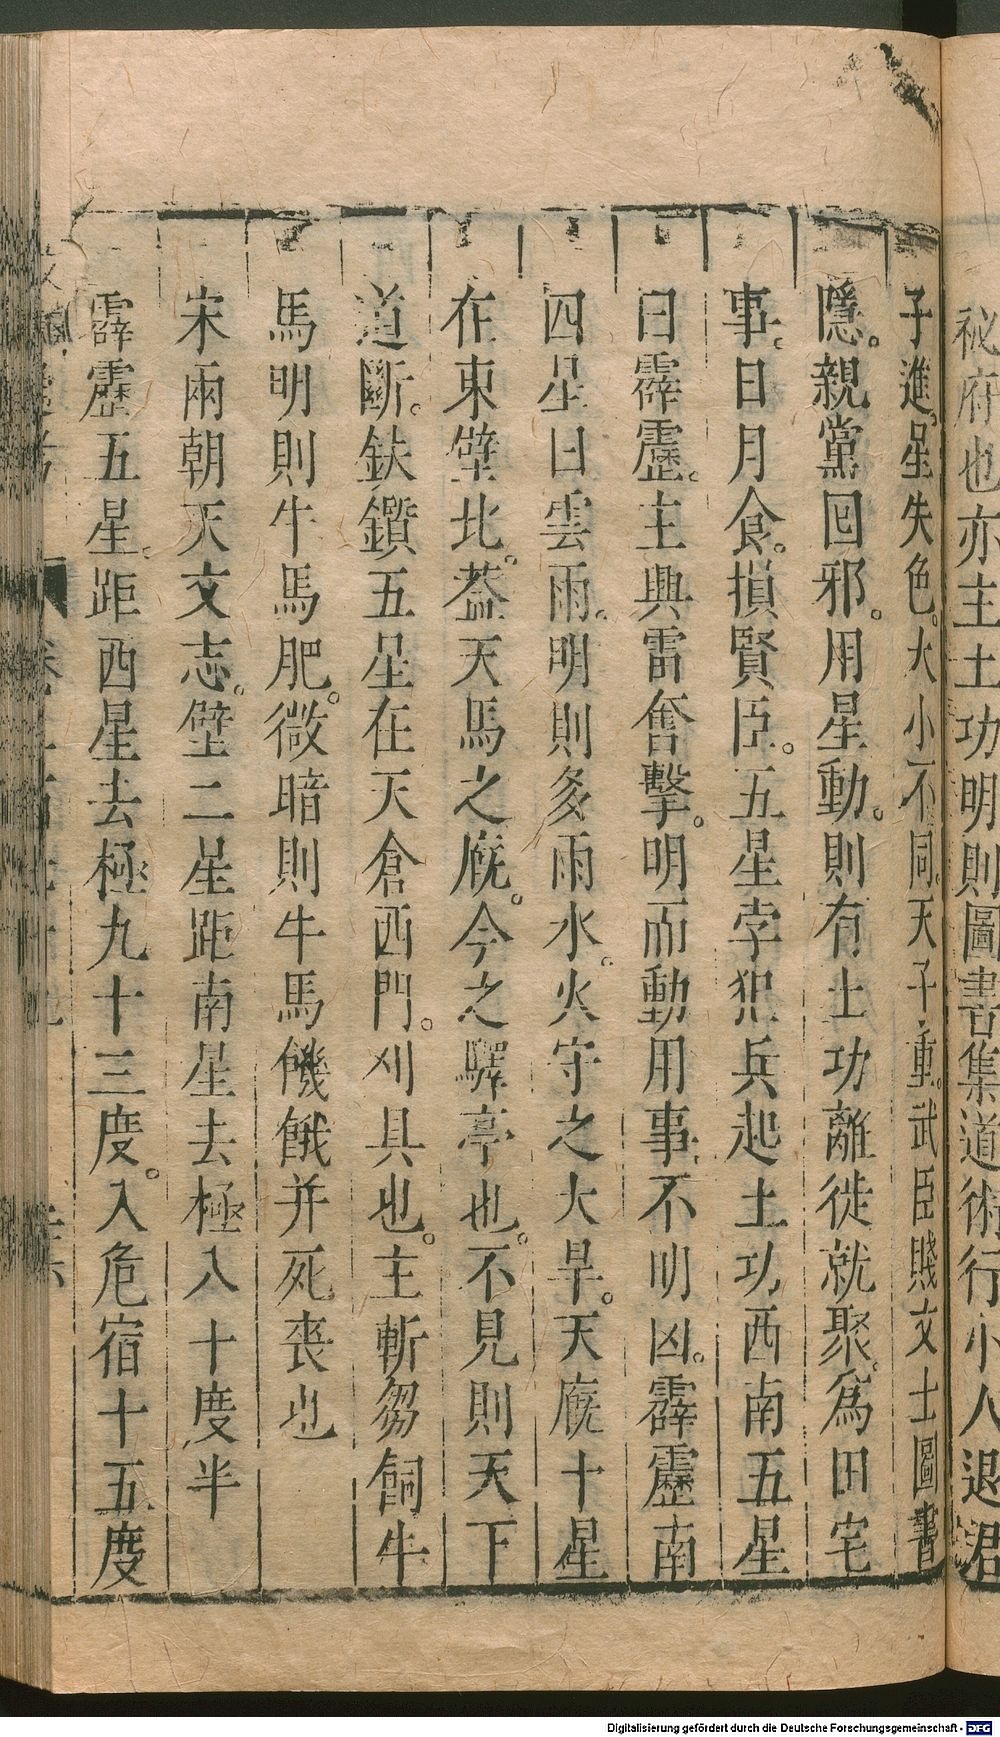 秘府也亦主土功明則圖書集道術行小人退君
子進星失色大小不同天子重武臣賤文士圖書
隱。親黨回邪。用星動。則有土功離徙就聚。為田宅
事。日月食。損賢臣。五星孛犯兵起土功西南五星
曰霹靂。主興雷奮擊。明而動用事不明凶。霹靂南
四星曰雲雨。明則多雨水。火守之大旱。天廐十星
在東壁北。葢天馬之廐。今之驛亭也。不見則天下
道斷。鈇鑕五星在天倉西門。刈具也。主斬芻飼牛
馬明則牛馬肥。微暗則牛馬饑餓并死喪也
宋兩朝天文志。壁二星距南星去極八十度半
霹靂五星。距西星去極九十三度。入危宿十五度
Digitalisierung gefördert durch die Deutsche Forschungsgemeinschaft - DFG